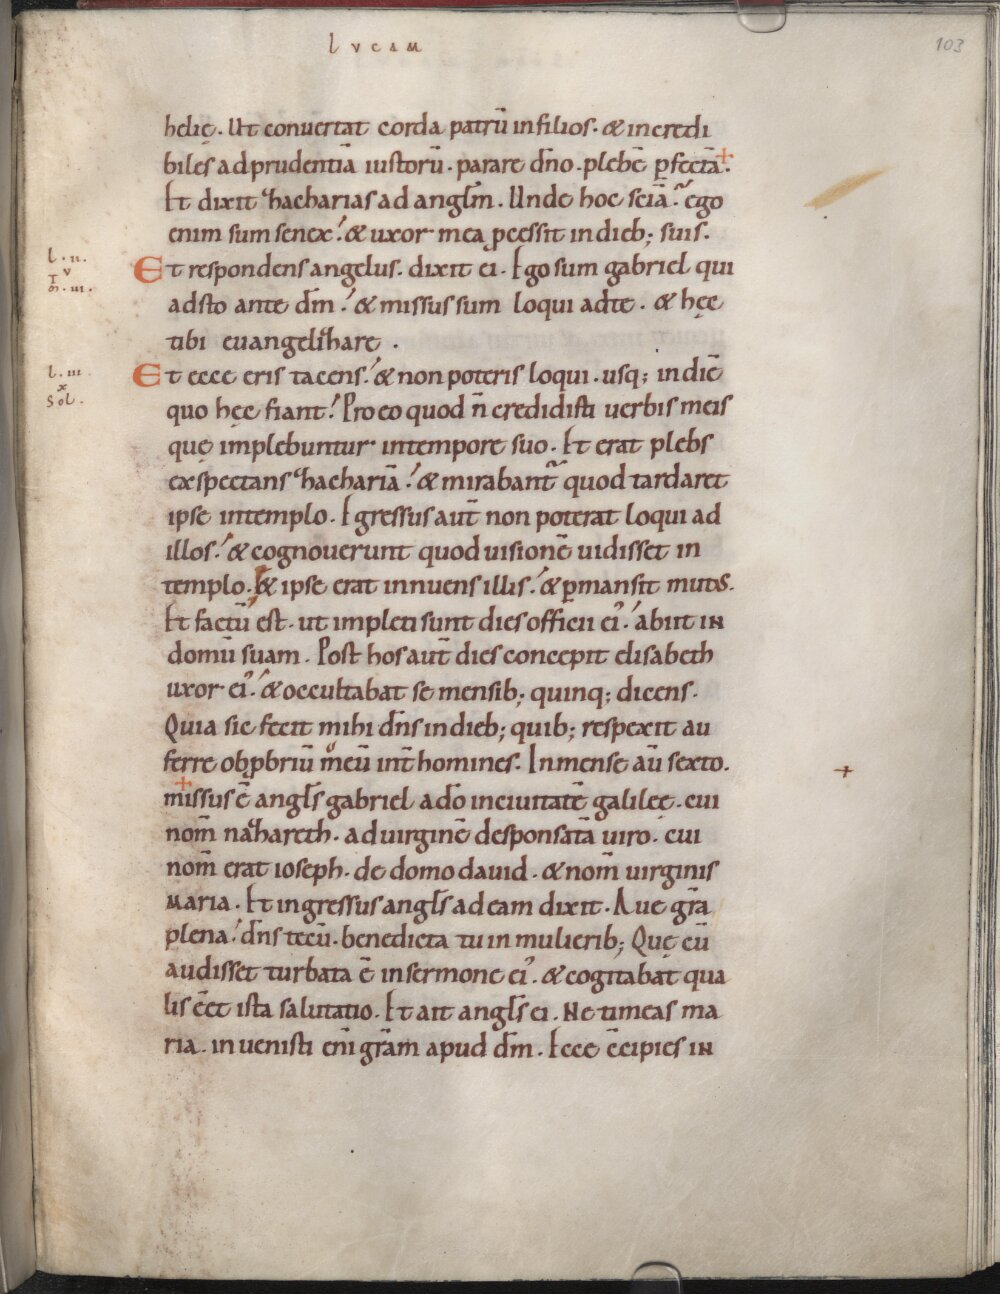 LVCAM
103
helię. Ut conuertat corda patrū in filios. & incredi
biles ad prudentiā iustorū. parare dn̄o. plebē ꝑfectā.
Et dixit Zhacharias ad angl̄m. Unde hoc sciā? ego
enim sum senex. & uxor mea ꝓcessit in dieb; suis.
l. ii.
v
m̄. iii.
Et respondens angelus. dixit ei. Ego sum gabriel qui
adsto ante dm̄. & missus sum loqui ad te. & hęc
tibi euangelizhare.
l. iii
x
Sol.
Et ecce eris tacens. & non poteris loqui. usq; in diē
quo hęc fiant. Pro eo quod n̄ credidisti uerbis meis
quę implebuntur in tempore suo. Et erat plebs
exspectans Zhachariā. & mirabant̄ quod tardaret
ipse in templo. Egressus aut̄ non poterat loqui ad
illos. & cognouerunt quod uisionē uidisset in
templo. & ipse erat innuens illis. & ꝑmansit mutus.
Et factū est. ut impleti sunt dies officii ei'. abiit in
domū suam. Post hos aut̄ dies concepit elisabeth
uxor ei'. & occultabat se mensib; quinq; dicens.
Quia sic fecit mihi dn̄s in dieb; quib; respexit au
ferre obꝓbriū meū int̄ homines. In mense aū sexto.
missus ē angl̄s gabriel a dō in ciuitatē galileę. cui
nom̄ nazhareth. ad uirginē desponsatā uiro. cui
nom̄ erat ioseph. de domo dauid. & nom̄ uirginis
maria. Et ingressus angl̄s ad eam dixit. Aue gr̄a
plena. dn̄s tecū. benedicta tu in mulierib; Quę cū
audisset turbata ē in sermone ei'. & cogitabat qua
lis eēt ista salutatio. Et ait angl̄s ei. Ne timeas ma
ria. inuenisti eni̅ gr̄am apud dm̄. Ecce c̄cipies in